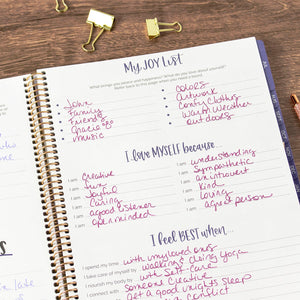 My JOY List
What brings you peace and happiness? What do you love about yourself?
Refer back to this page when you need a boost.
John
Family
Friends
Music
colors
Artwork
Comfy Clothes
Warm Weather
outdoors
I love MYSELF because...
I am creative
I am fun
I am joyful
I am caring
I am a good listener
I am open minded
I am understanding
I am sympathetic
I am an introvert
I am kind
I am loving
I am a great person
I feel BEST when...
I spend my time with my loved ones
I take care of myself by walking & doing yoga
I nourish my body by with self-care
I connect with someone creative
get a good nights sleep
conflict